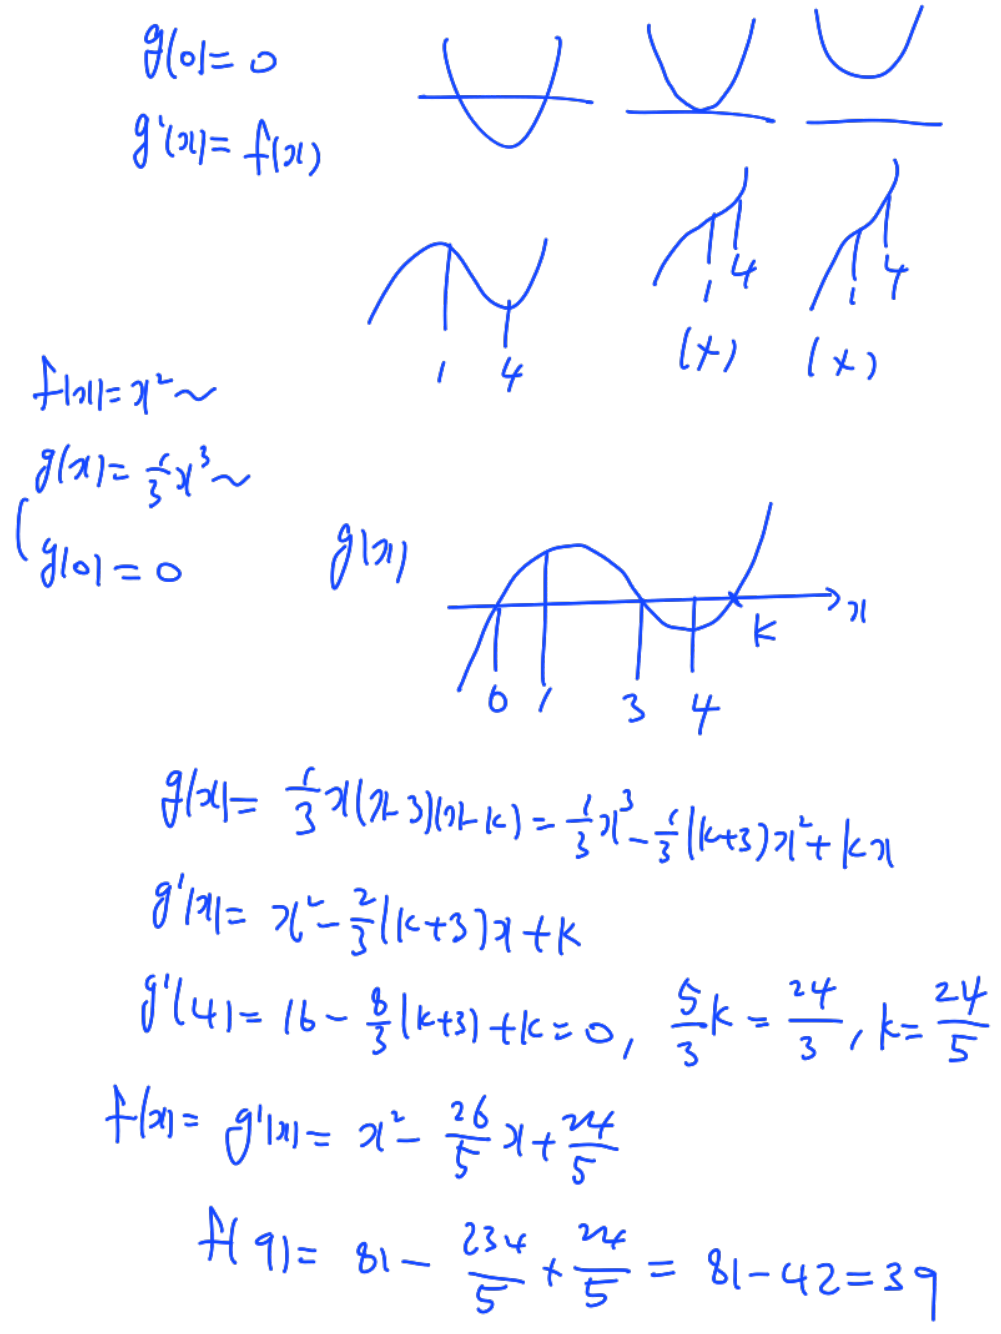 g(0)=0
g'(x)=f(x)
1 4
1 4
1 4
(×) (×)
f(x)=x²~
g(x)=1/3x³~
g(0)=0
g(x)
x
k
0 1 3 4
g(x)=1/3x(x-3)(x-k)=1/3x³-1/3(k+3)x²+kx
g'(x)=x²-2/3(k+3)x+k
g'(4)=16-8/3(k+3)+k=0, 5/3k=24/3, k=24/5
f(x)=g'(x)=x²-26/5x+24/5
f(9)=81-234/5+24/5=81-42=39